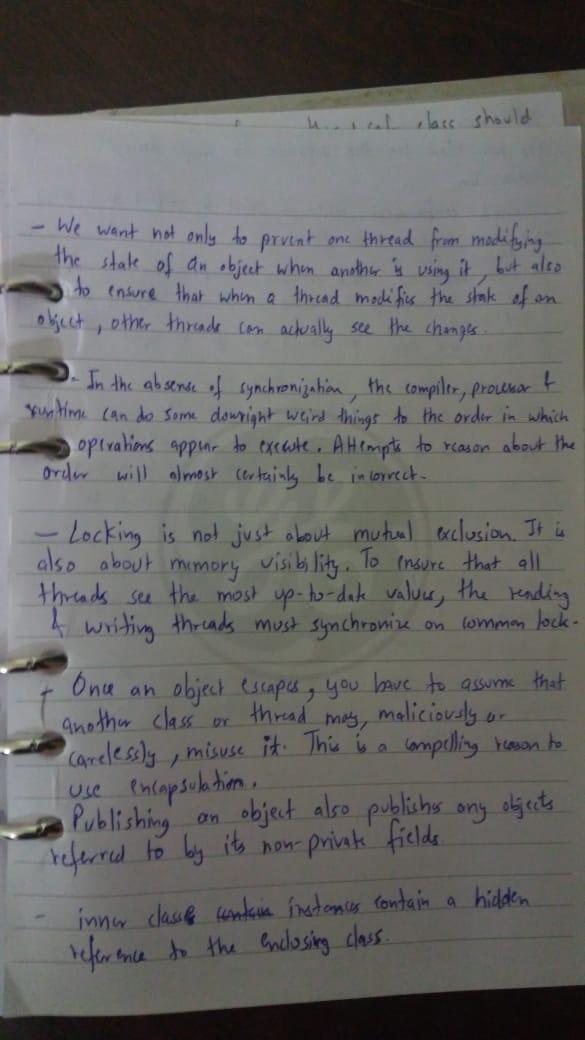 class should
- We want not only to prvent one thread from modifying
the state of an object when another is using it, but also
to ensure that when a thread modifies the state of an
object, other threads can actually see the changes.
- In the absense of synchronization, the compiler, processor &
runtime can do some dowright weird things to the order in which
operations appear to execute. Attempts to reason about the
order will almost certainly be incorrect-
- Locking is not just about mutual exclusion. It is
also about memory visibility. To ensure that all
threads see the most up-to-date values, the reading
& writing threads must synchronize on common lock-
+ Once an object escapes, you have to assume that
another class or thread may, maliciously or
carelessly, misuse it. This is a compelling reason to
use encapsulation.
- Publishing an object also publishes any objects
referred to by its non-private fields.
- inner class instances contain a hidden
reference to the enclosing class.